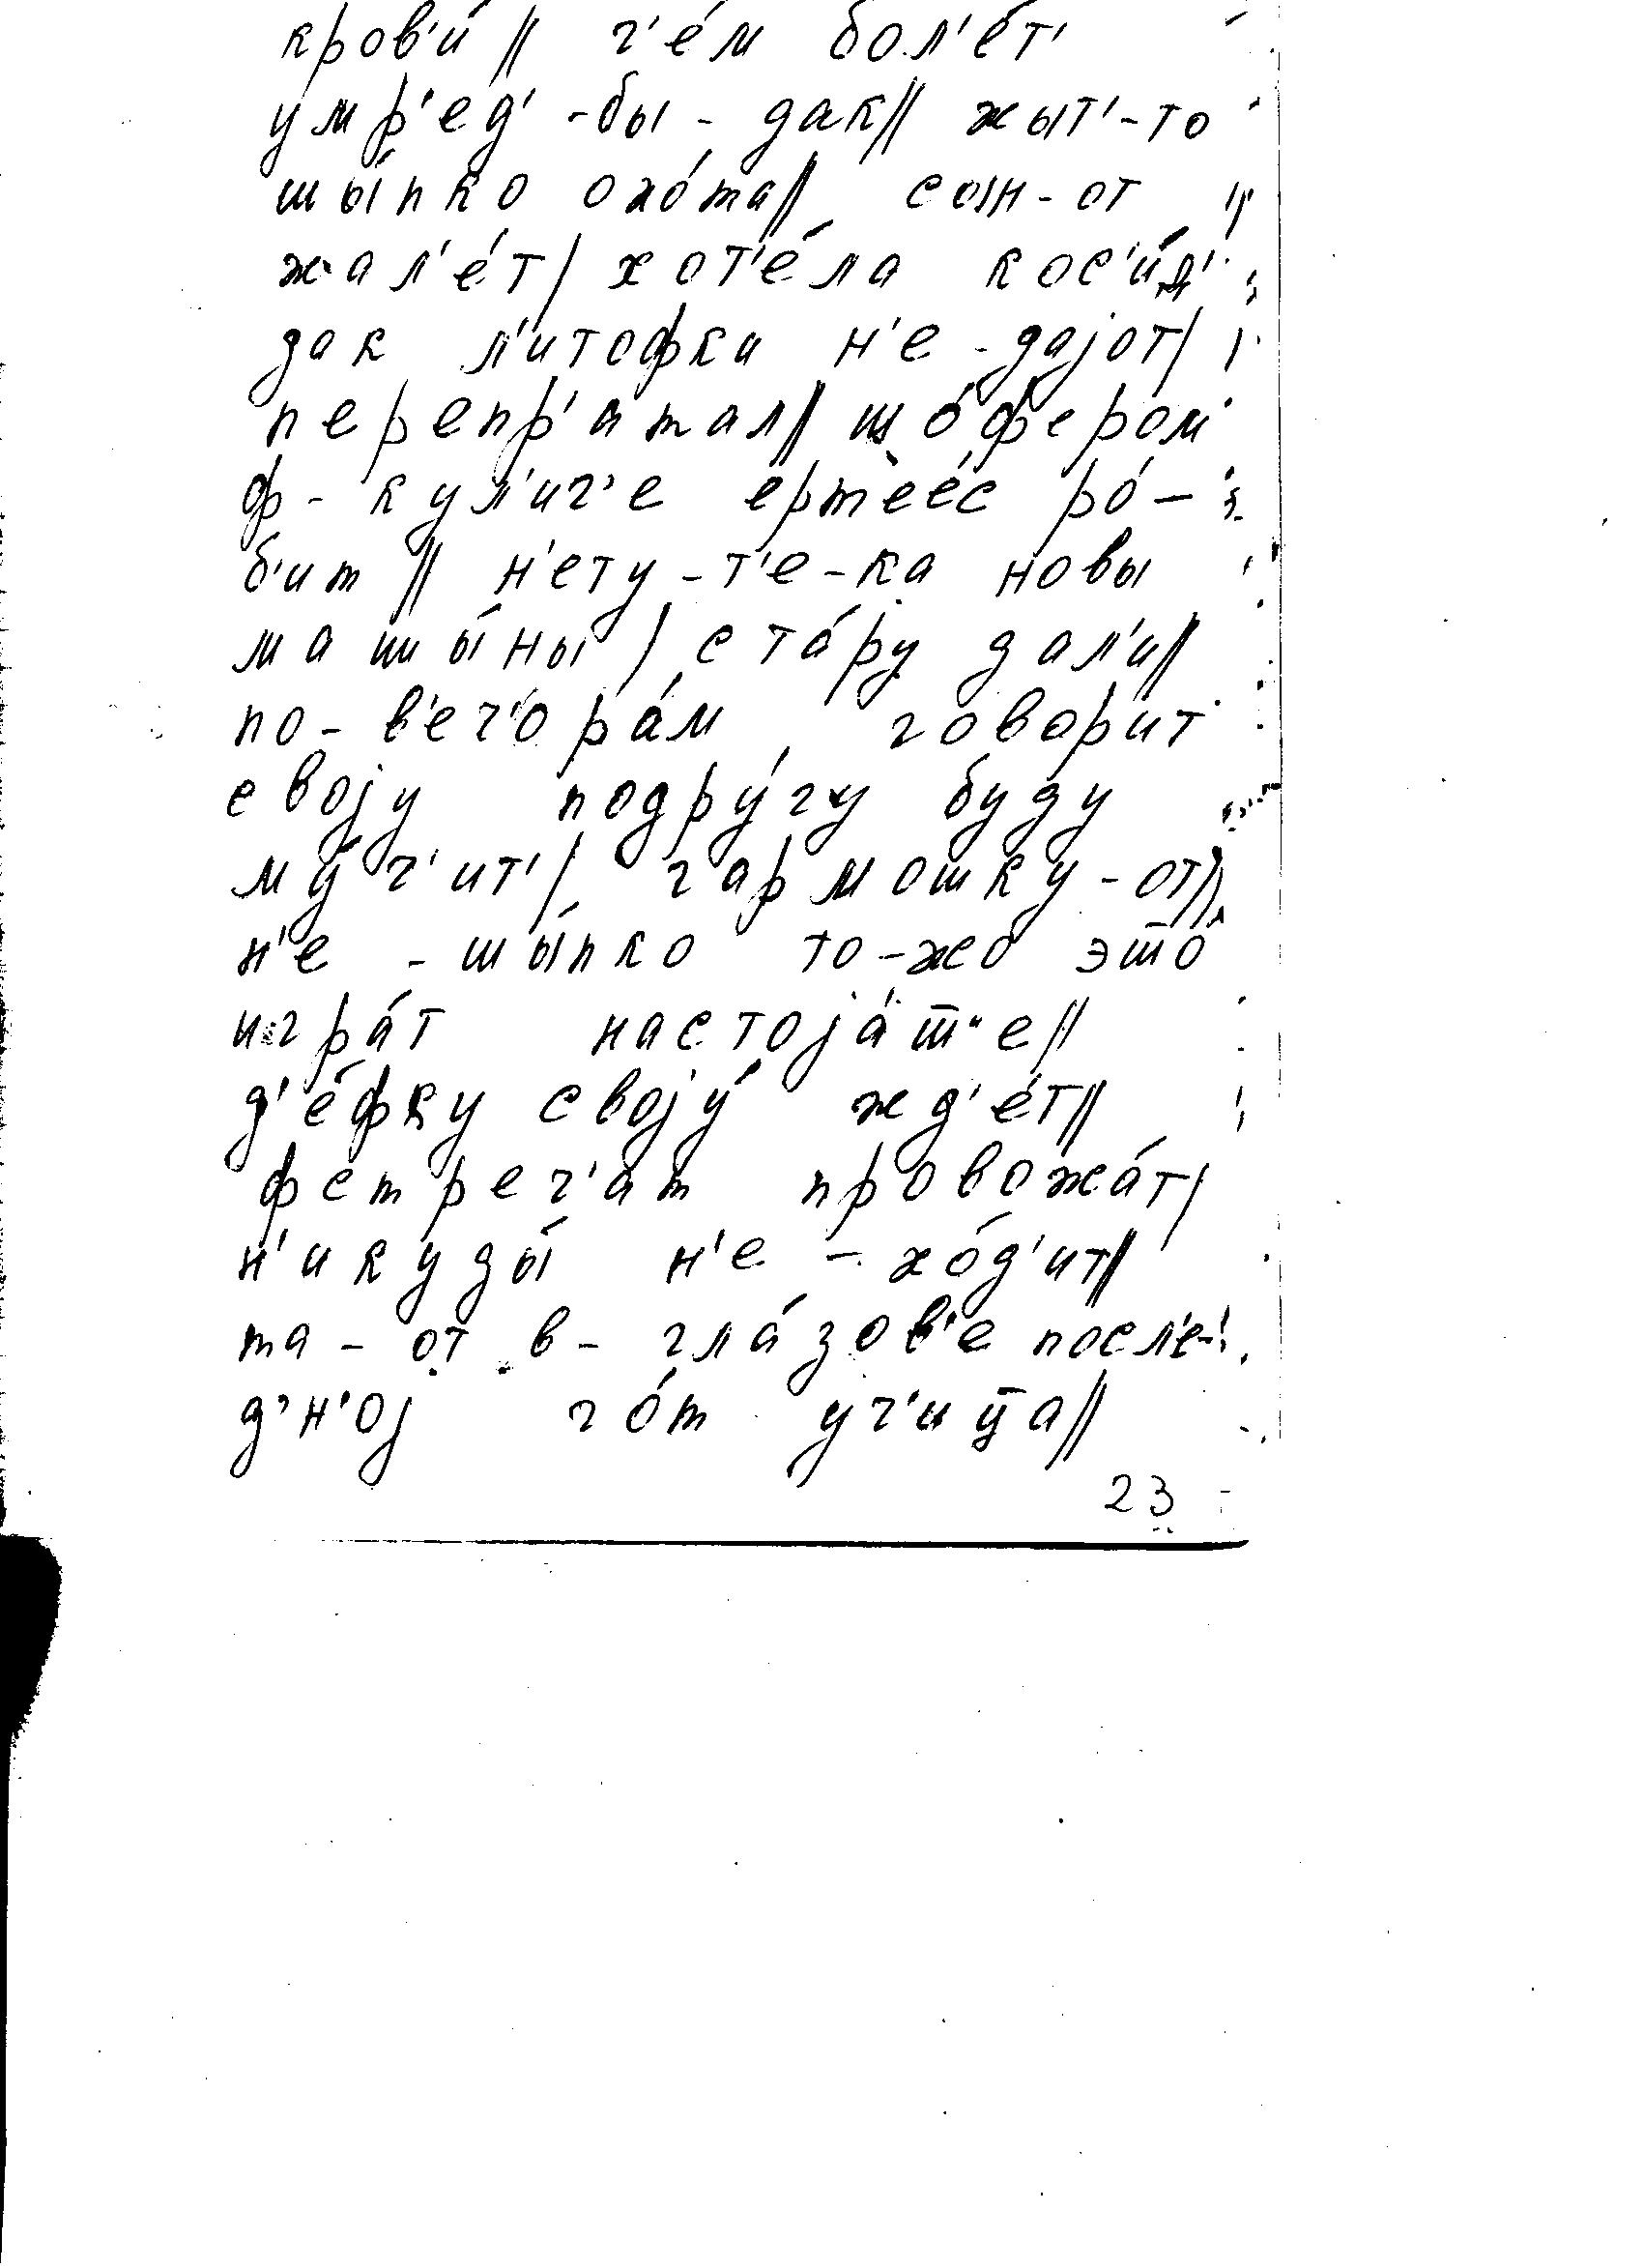 кров'и́ // ч'е́м бол'е́т'
умр'ед'-бы-дак// жыт'-то
шы́пко охо́та// сын-от
жал'е́т/ хот'е́ла кос'и́т'
дак л'итофки н'е-дајот/
перепр'атал// шо́фером
ф-кул'иг'е ертеес ро́-
б'ит // н'ету-т'е-ка новы
машы́ны / ста́ру дал'и//
по-в'еч'ора́м говор'ит
својy подру́гу буду
му́ч'ит'/ гармошку-от//
н'е-шы́пко то-жо это
игра́т настоја́т'е//
д'е́фку своју́ жд'е́т//
фстреч'ат провожа́т/
н'икуды́ н'е-хо́д'ит//
та-от в-гла́зов'е посл'е-
д'н'ој го́т уч'ица//
23